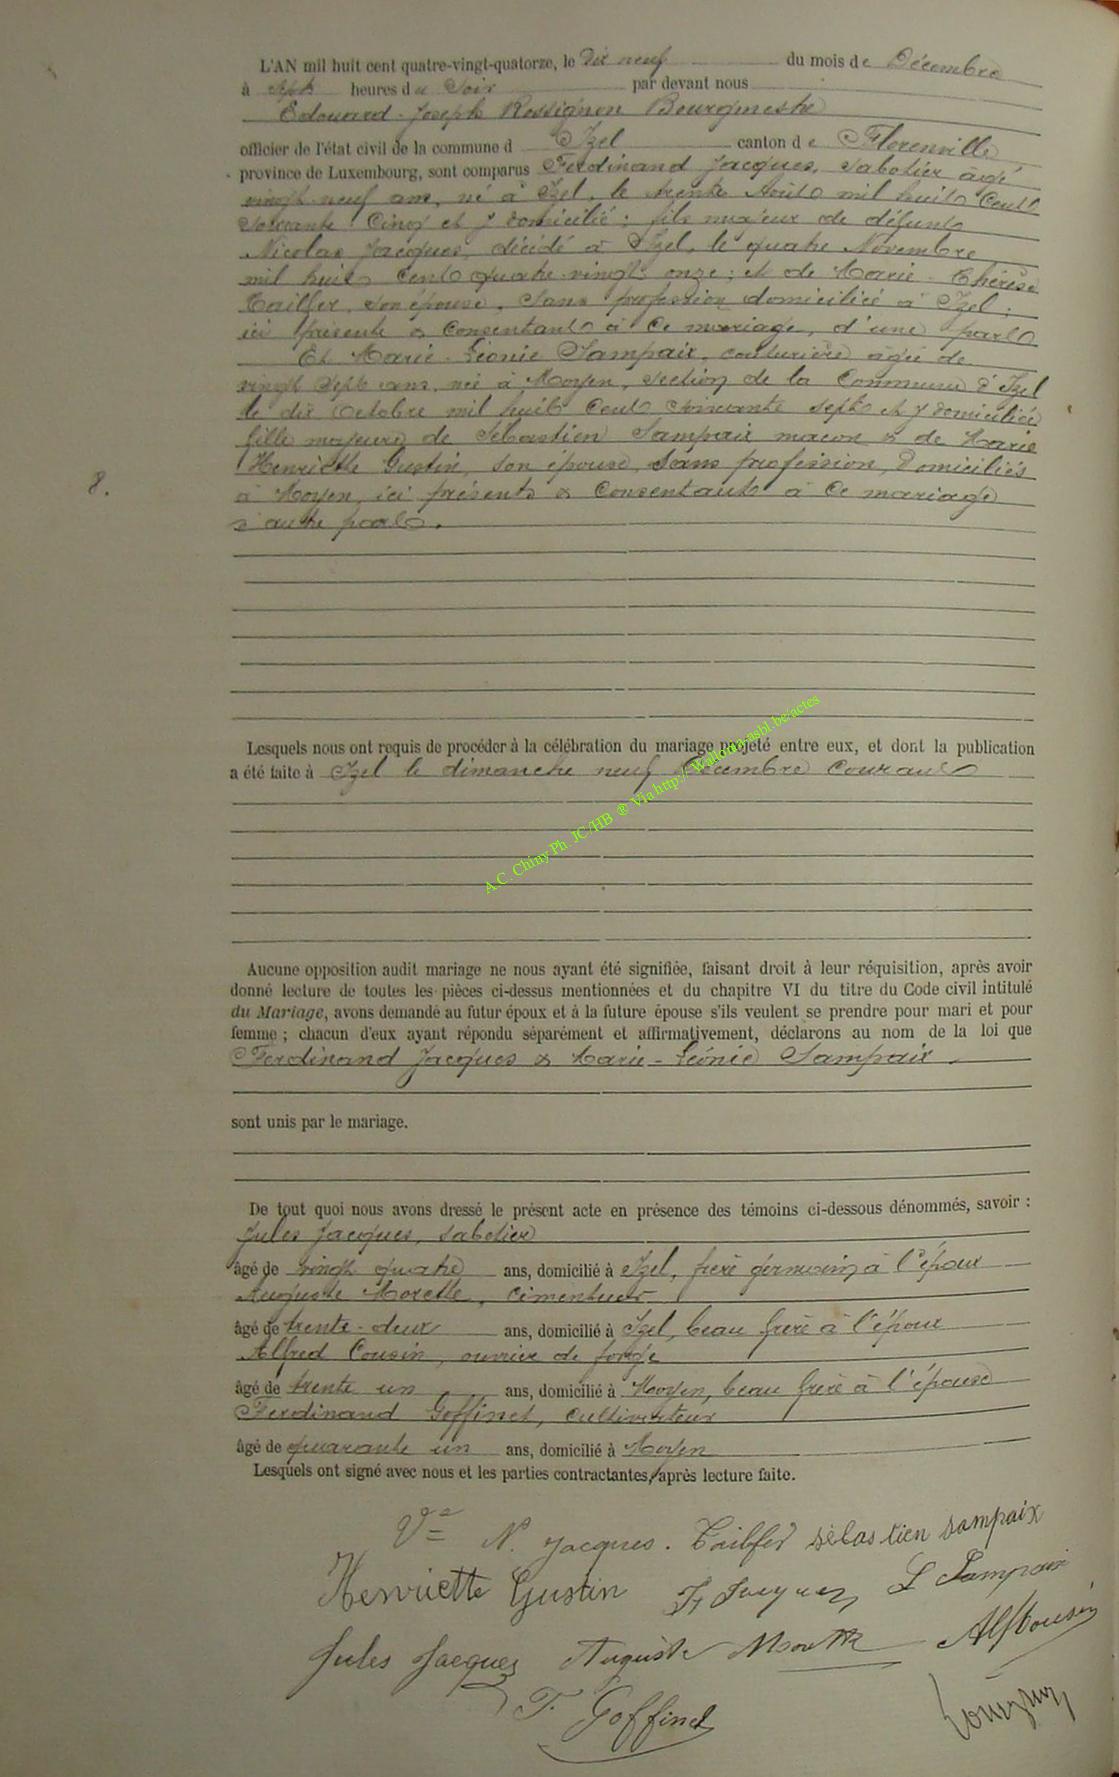 L'AN mil huit cent quatre-vingt-quatorze, le dix neuf du mois de Décembre
à sept heures du Soir par devant nous
Edouard-Joseph Rossignon Bourgmestre
officier de l'état civil de la commune d Izel canton de Florenville
province de Luxembourg, sont comparus Ferdinand Jacques, sabotier agé
vingt neuf ans, né à Izel, le trente Août mil huit Cent
soixante Cinq et y domicilié ; fils majeur de défunt
Nicolas Jacques, décédé à Izel, le quatre Novembre
mil huit Cent quatre vingt onze ; et de Marie-Thérèse
Tailfer, son épouse, Sans profession domiciliée à Izel ;
ici présente & Consentant à Ce mariage, d'une part
Et Marie-Léonie Sampaix, couturière âgée de
vingt Sept ans, née à Moyen, section de la Commune d'Izel
le dix Octobre mil huit Cent soixante sept et y domiciliée
fille majeure de Sébastien Sampaix maçon & de Marie
Henriette Gustin, son épouse, Sans profession, Domiciliés
8.
à Moyen, ici présents & Consentant à Ce mariage
d'autre part.
Lesquels nous ont requis de procéder à la célébration du mariage projeté entre eux, et dont la publication
a été faite à Izel le dimanche neuf Décembre Courant
A.C. Chiny Ph. JC/HB ® Via http://Wallonia-asbl.be/actes
Aucune opposition audit mariage ne nous ayant été signifiée, faisant droit à leur réquisition, après avoir
donné lecture de toutes les pièces ci-dessus mentionnées et du chapitre VI du titre du Code civil intitulé
du Mariage, avons demandé au futur époux et à la future épouse s'ils veulent se prendre pour mari et pour
femme ; chacun d'eux ayant répondu séparément et affirmativement, déclarons au nom de la loi que
Ferdinand Jacques & Marie-Léonie Sampaix.
sont unis par le mariage.
De tout quoi nous avons dressé le présent acte en présence des témoins ci-dessous dénommés, savoir :
Jules Jacques, sabotier
âgé de vingt quatre ans, domicilié à Izel, frère germain à l'époux
Auguste Morette, cimentier
âgé de trente-deux ans, domicilié à Izel, beau frère à l'époux
Alfred Cousin, ouvrier de forge
âgé de trente un ans, domicilié à Moyen, beau frère à l'épouse
Ferdinand Goffinet, cultivateur
âgé de quarante un ans, domicilié à Moyen
Lesquels ont signé avec nous et les parties contractantes, après lecture faite.
Ve N. Jacques. Tailfer sébastien sampaix
Henriette Gustin F Jacques L Sampaix
Jules Jacques Auguste Alf Cousin
F. Goffinet